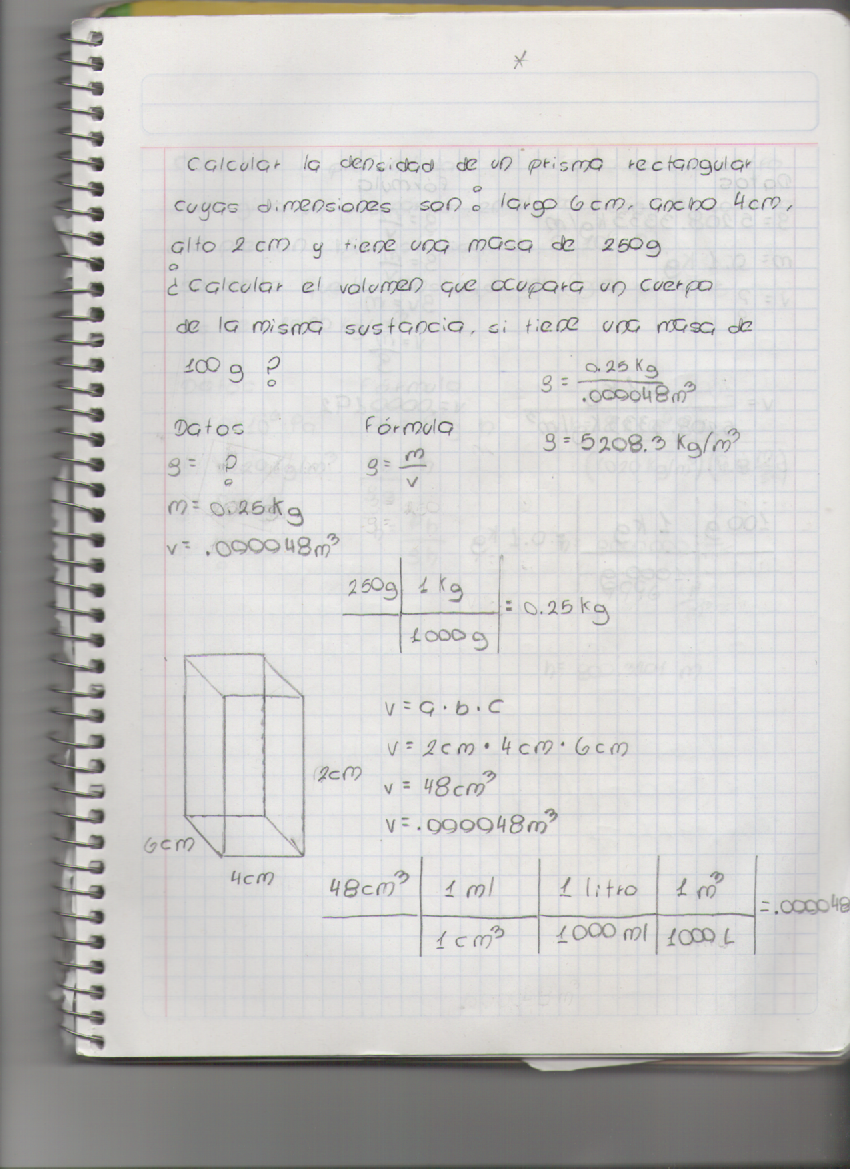 *
Calcular la densidad de un prisma rectangular
cuyas dimensiones son: largo 6cm. ancho 4cm,
alto 2cm y tiene una masa de 250g
¿Calcular el volumen que ocupara un cuerpo
de la misma sustancia, si tiene una masa de
100g ?
ρ = 0.25 Kg
.000048m³
ρ = 5208.3 Kg/m³
Datos Fórmula
ρ = ? ρ = m
v
m = 0.25 Kg
v = .000048m³
250g 1 Kg = 0.25 Kg
1000g
v = a · b · c
v = 2cm · 4cm · 6cm
v = 48cm³
v = .000048m³
2cm
6cm
4cm
48cm³ 1 ml 1 litro 1 m³ = .000048
1 cm³ 1000 ml 1000 L